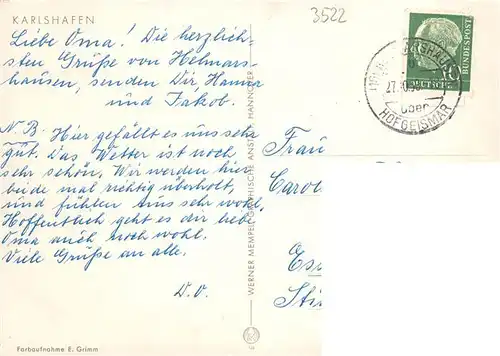 KARLSHAFEN
3522
Liebe Oma! Die herzlich-
sten Grüße von Helmars-
hausen, senden Dir
und Jakob.
N.B. Hier gefällt es uns sehr
gut. Das Wetter ist noch
sehr schön. Wir werden hier
beide mal richtig überholt,
und fühlen uns sehr wohl.
Hoffentlich geht es dir liebe
Oma auch noch wohl.
Viele Grüße an alle.
D.O.
Farbaufnahme E. Grimm
WERNER MEMPEL GRAPHISCHE ANSTALT, HANNOVER
DEUTSCHE
BUNDESPOST
10
über
HOFGEISMAR
Frau
Carol
Es
Sti